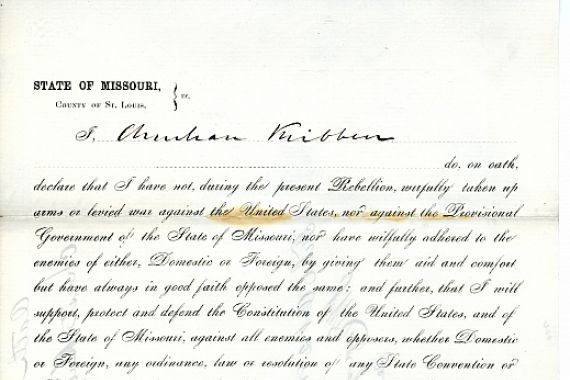 STATE OF MISSOURI,
COUNTY OF ST. LOUIS. } ss.
I, Christian Kribben
do, on oath,
declare that I have not, during the present Rebellion, wilfully taken up
arms or levied war against the United States, nor against the Provisional
Government of the State of Missouri, nor have wilfully adhered to the
enemies of either, Domestic or Foreign, by giving them aid and comfort
but have always in good faith opposed the same; and further, that I will
support, protect and defend the Constitution of the United States, and of
the State of Missouri, against all enemies and opposers, whether Domestic
or Foreign, any ordinance, law or resolution of any State Convention or